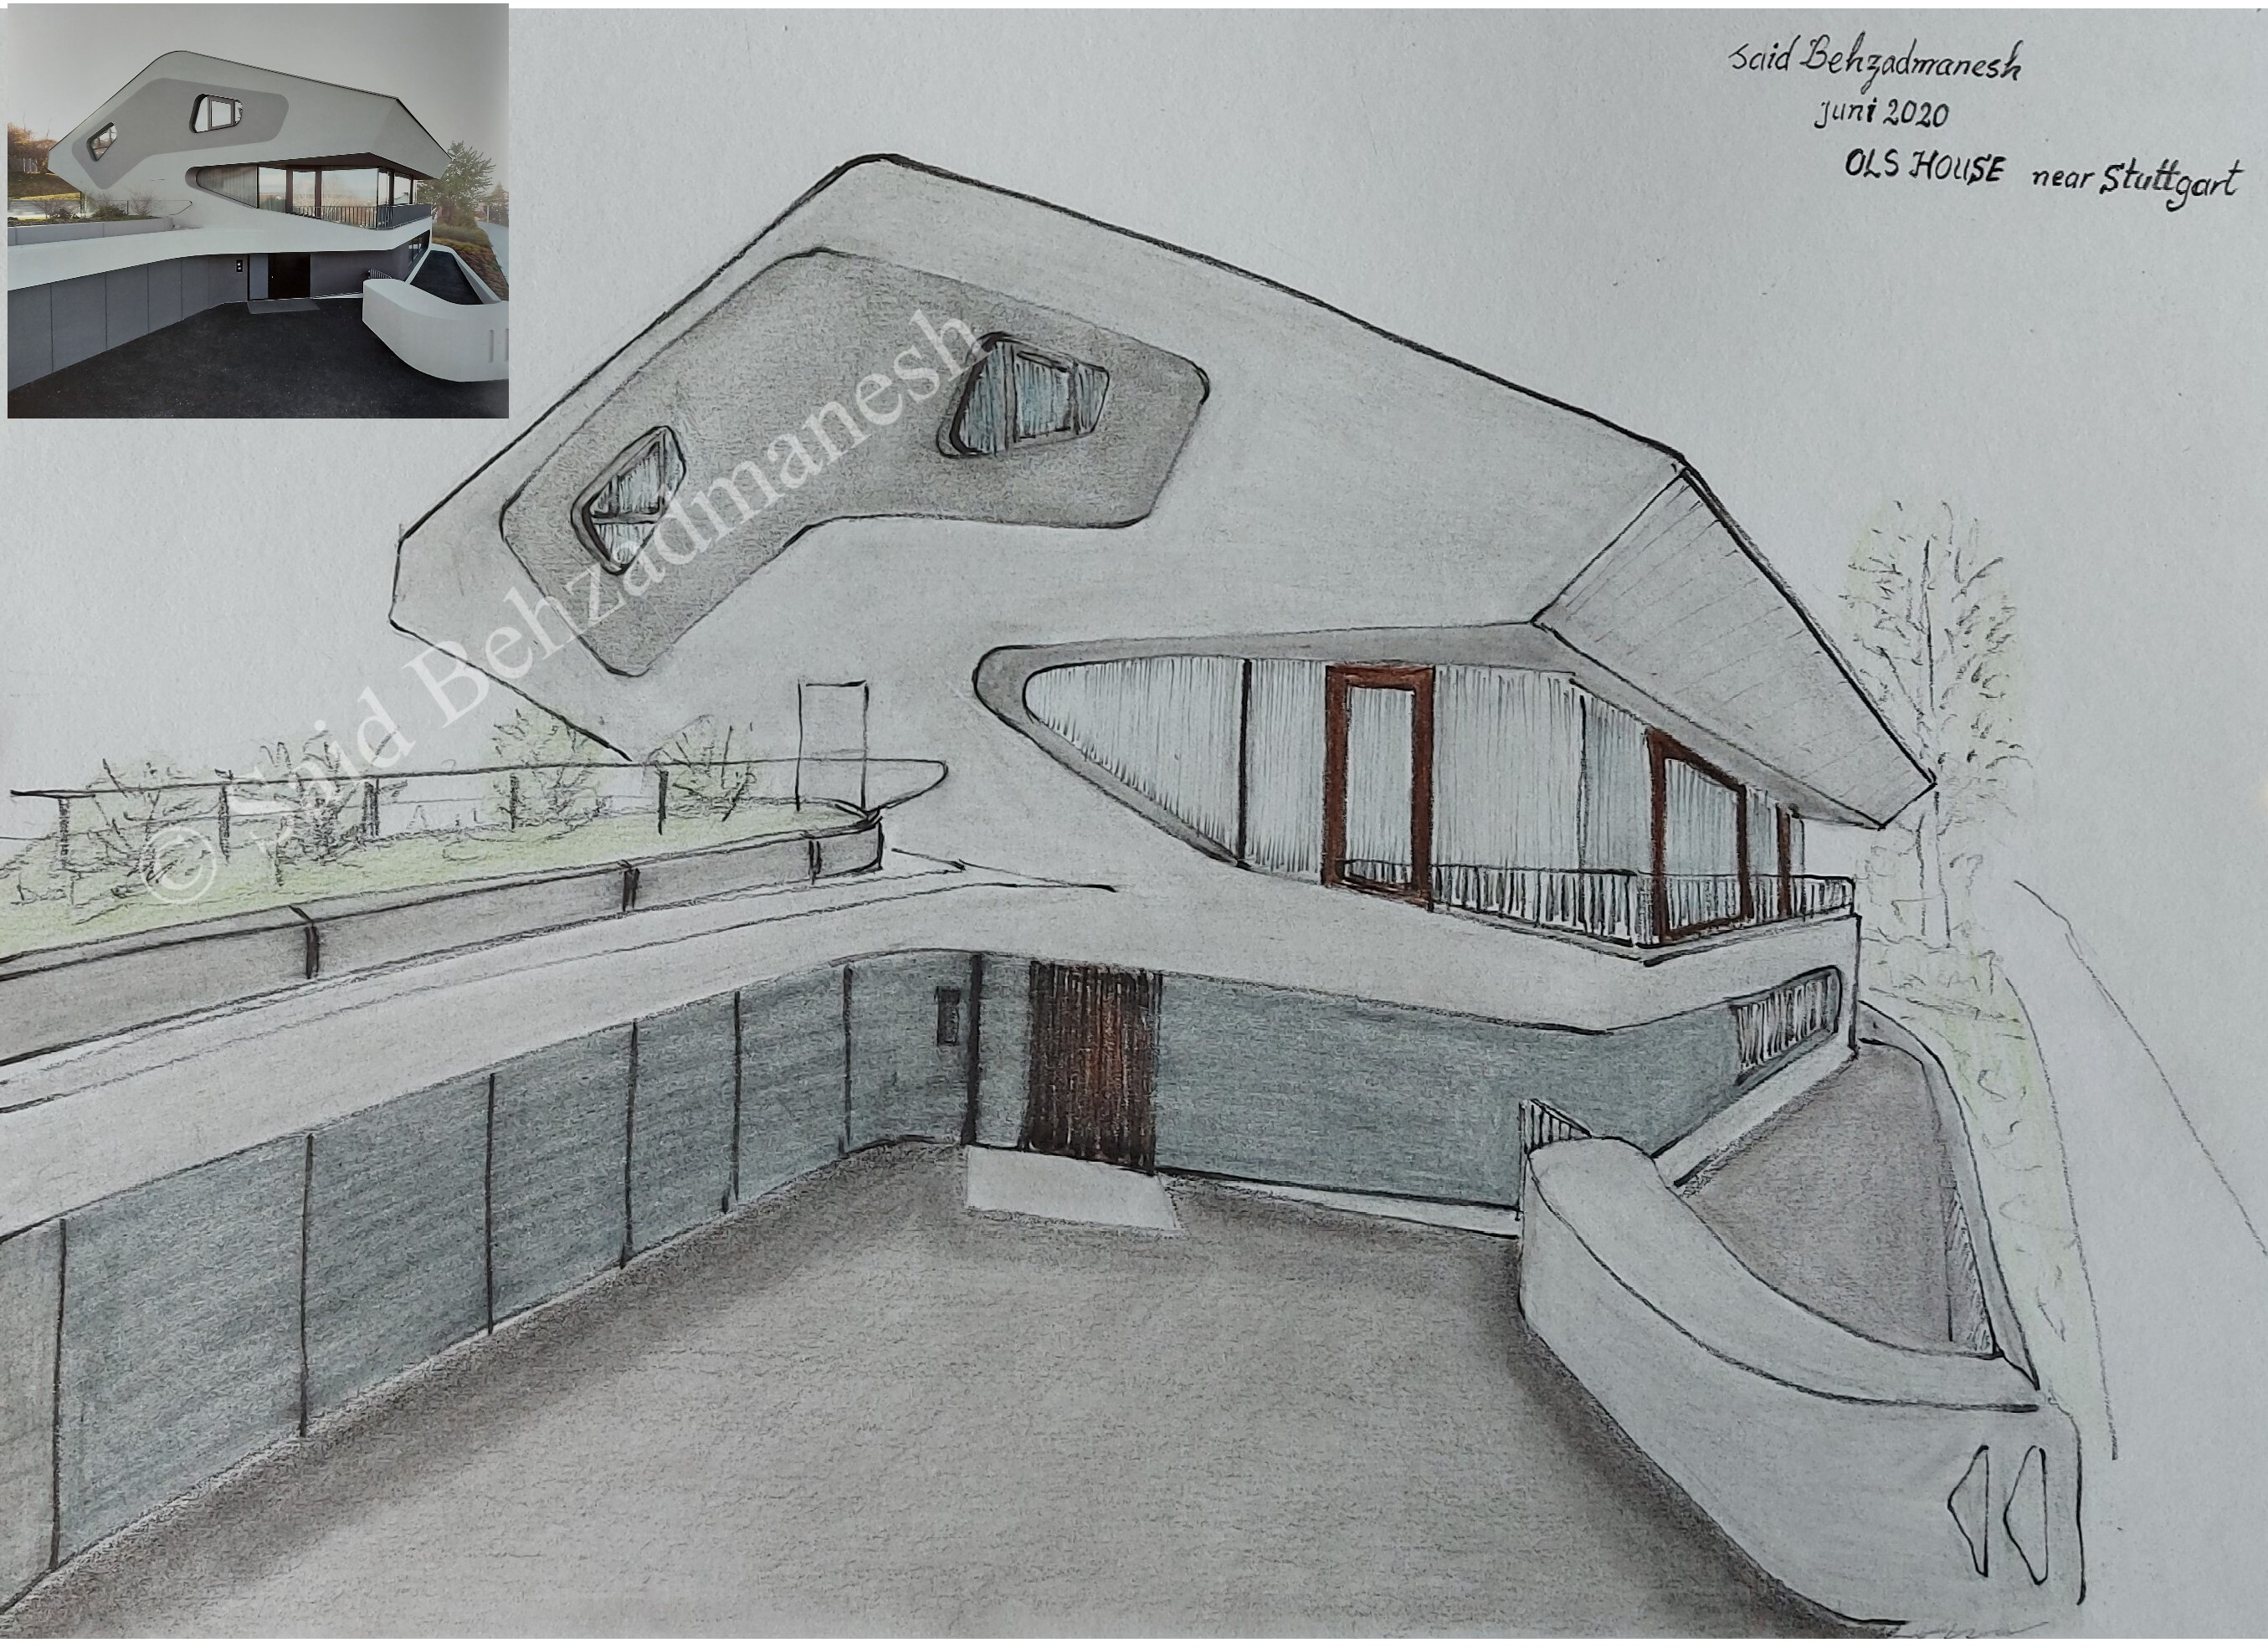 Said Behzadmanesh
juni 2020
OLS HOUSE near Stuttgart
© Said Behzadmanesh